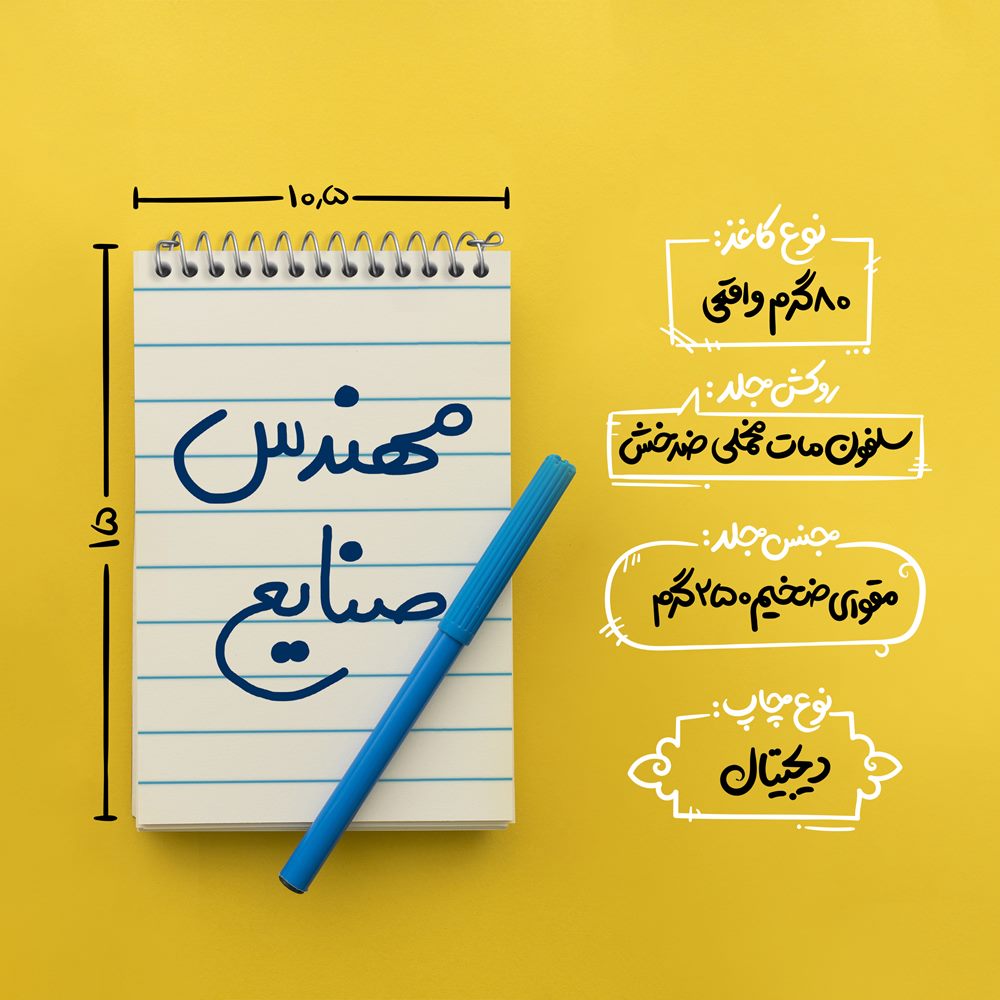 ۱۰٫۵
۱۵
مهندس
صنایع
نوع کاغذ:
۸۰ گرم واقعی
روکش جلد:
سلفون مات مخملی ضدخش
جنس جلد:
مقوای ضخیم ۲۵۰ گرم
نوع چاپ:
دیجیتال